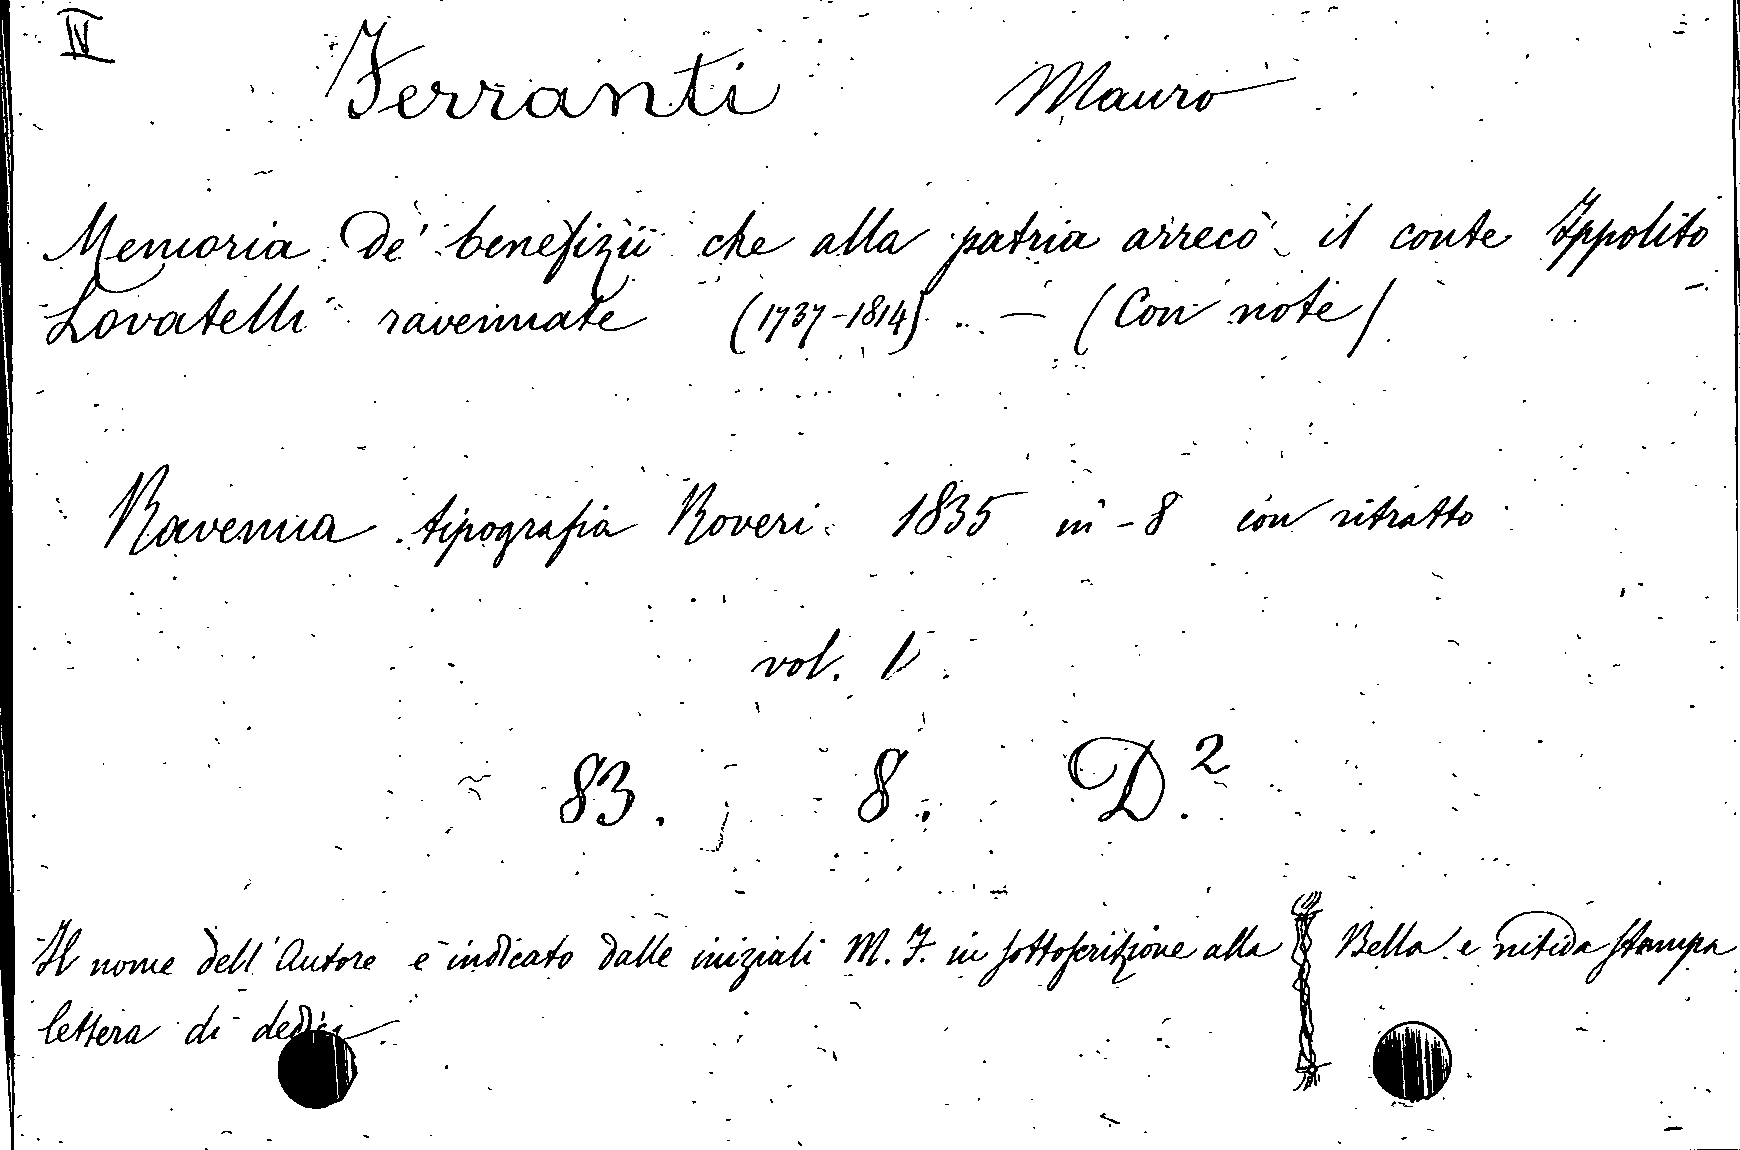 IV
Ferranti Mauro
Memoria de' benefizii che alla patria arrecò il conte Ippolito
Lovatelli ravennate (1737-1814) - (Con note)
Ravenna tipografia Roveri. 1835 in-8 con ritratto
vol. 1
83. 8. D.²
Il nome dell'Autore è indicato dalle iniziali M. F. in sottoscrizione alla
lettera di dedica.
Bella e nitida stampa